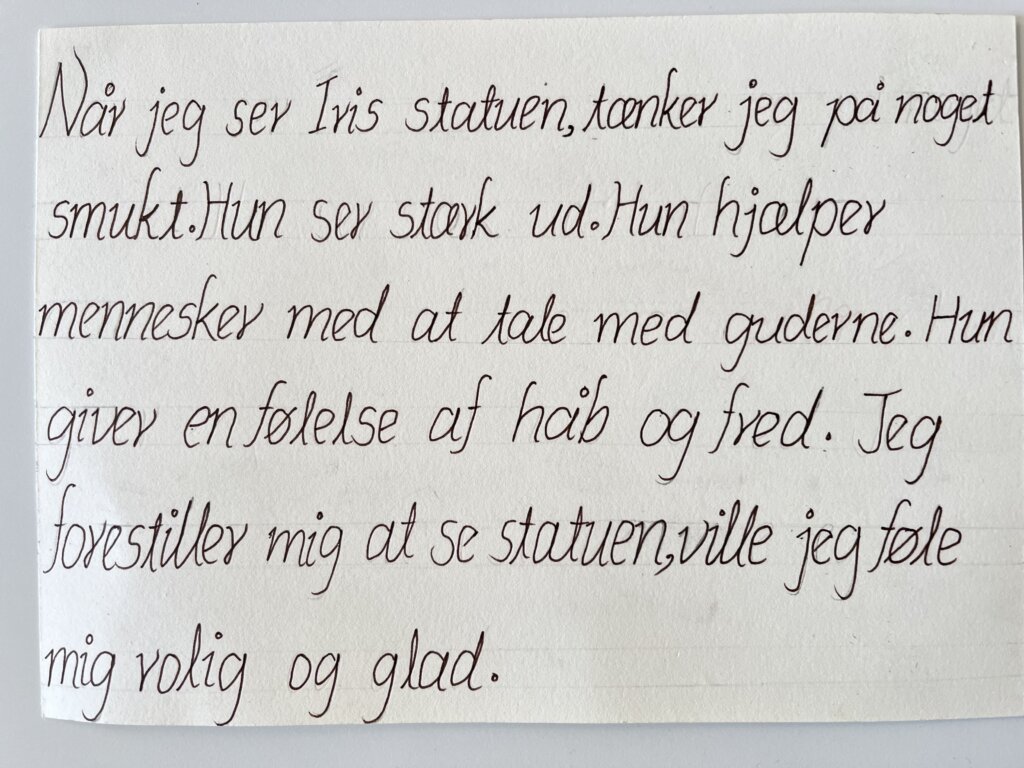 Når jeg ser Iris statuen, tænker jeg på noget
smukt. Hun ser stærk ud. Hun hjælper
mennesker med at tale med guderne. Hun
giver en følelse af håb og fred. Jeg
forestiller mig at se statuen, ville jeg føle
mig rolig og glad.